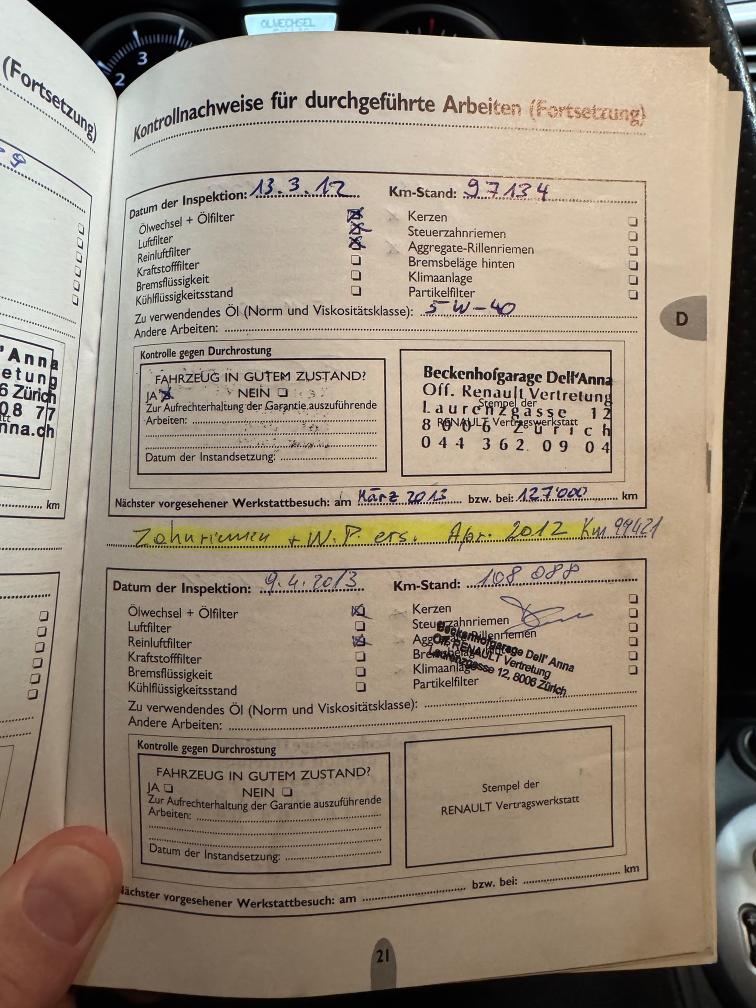 ÖLWECHSEL
2
3
(Fortsetzung)
'Anna
etung
6 Zürich
08 77
nna.ch
km
Kontrollnachweise für durchgeführte Arbeiten (Fortsetzung)
Datum der Inspektion: 13.3.12 Km-Stand: 97134
Ölwechsel + Ölfilter Kerzen
Luftfilter Steuerzahnriemen
Reinluftfilter Aggregate-Rillenriemen
Kraftstofffilter Bremsbeläge hinten
Bremsflüssigkeit Klimaanlage
Kühlflüssigkeitsstand Partikelfilter
Zu verwendendes Öl (Norm und Viskositätsklasse): 5W-40
Andere Arbeiten:
D
Kontrolle gegen Durchrostung
FAHRZEUG IN GUTEM ZUSTAND?
JA NEIN
Zur Aufrechterhaltung der Garantie auszuführende
Arbeiten:
Datum der Instandsetzung:
Beckenhofgarage Dell'Anna
Off. Renault Vertretung
Stempel der
Laurenzgasse 12
RENAULT Vertragswerkstatt
8006 Zürich
044 362 09 04
Nächster vorgesehener Werkstattbesuch: am März 2013 bzw. bei: 127'000 km
Zahnriemen + W.P. ers. Apr. 2012 Km 99421
Datum der Inspektion: 9.4.2013 Km-Stand: 108 088
Ölwechsel + Ölfilter Kerzen
Luftfilter Steuerzahnriemen
Reinluftfilter Aggregate-Rillenriemen
Kraftstofffilter Bremsbeläge
Bremsflüssigkeit Klimaanlage
Kühlflüssigkeitsstand Partikelfilter
Beckenhofgarage Dell' Anna
Off. RENAULT Vertretung
Laurenzgasse 12, 8006 Zürich
Zu verwendendes Öl (Norm und Viskositätsklasse):
Andere Arbeiten:
Kontrolle gegen Durchrostung
FAHRZEUG IN GUTEM ZUSTAND?
JA NEIN
Zur Aufrechterhaltung der Garantie auszuführende
Arbeiten:
Datum der Instandsetzung:
Stempel der
RENAULT Vertragswerkstatt
Nächster vorgesehener Werkstattbesuch: am bzw. bei: km
21